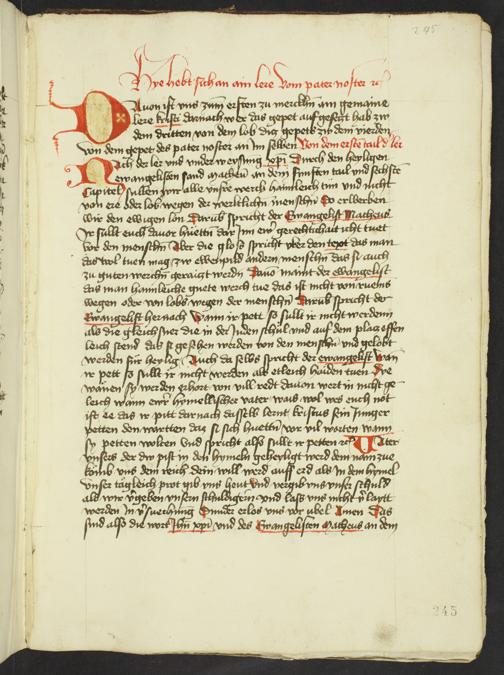 245
Hye hebt sich an ain lere vom pater noster
Dauon ist vns zum ersten zu mercken ain gemaine
lere kristi darnach wer das gepet auf gesetzt hab zw
dem dritten von dem lob diz gepets zw dem vierden
von dem gepet des pater noster an im selben Von dem erste tail d ler
Nach der ler vnd vnderweysung xpi Durch den heyligen
ewangelisten sand matheu an dem funften tail vnd sechste
Capitel sullen wir alle vnsre werch haimleich tun vnd nicht
von ere oder lobs wegen der menschen So erberben
wir den ewigen lon Darub spricht der Ewangelist Matheus
Ir sult euch dauor huettn dar im ewr gerechtikait icht tuet
vor den menschn Aber die glos spricht vber den text das man
das wol tuen mag zw ebenpild andern menschn das si auch
zu guten werchn geraigt werdn Dauo maint der ewangelist
das man haimleiche guete werch tue das ist nicht von ruems
wegen oder von lobs wegen der menschn Darub spricht der
Ewangelist hernach Wann ir pett so sullt ir nicht werden
als die gleichsner die in der Juden schul vnd auf dem placz offen
leich stend das si gesehen werden von den menschn vnd gelobt
werden fur heylig Auch da selbs spricht der ewangelist Wan
ir pett so sullt ir nicht werden als etleich haiden tuen Die
wanen sy werden erhort von vill redt dauon wert in nicht ge
leich wann ewr hymellischer vater wais wol wes euch not
ist ee das ir pitt darnach dasselb lernt kristus sein Junger
petten den wartten das si sich huettn vor vil worten wann
sy petten wolten vnd spricht also sullt ir petten Vater
vnsers der dw pist in den hymeln geheyligt werd dein nam zue
komb vns dein reich dein will werd auff erd als in dem hymel
vnser tagleich prot gib vns heut vnd vergib vns vnser schuld
als wir vergeben vnsern schuldigern vnd lass vns nicht verlaytt
werden in versuechung Sunder erlos vns vor vbel Amen Das
sind also die wort Jhu xpi vnd des Ewangelisten Matheus an dem
245